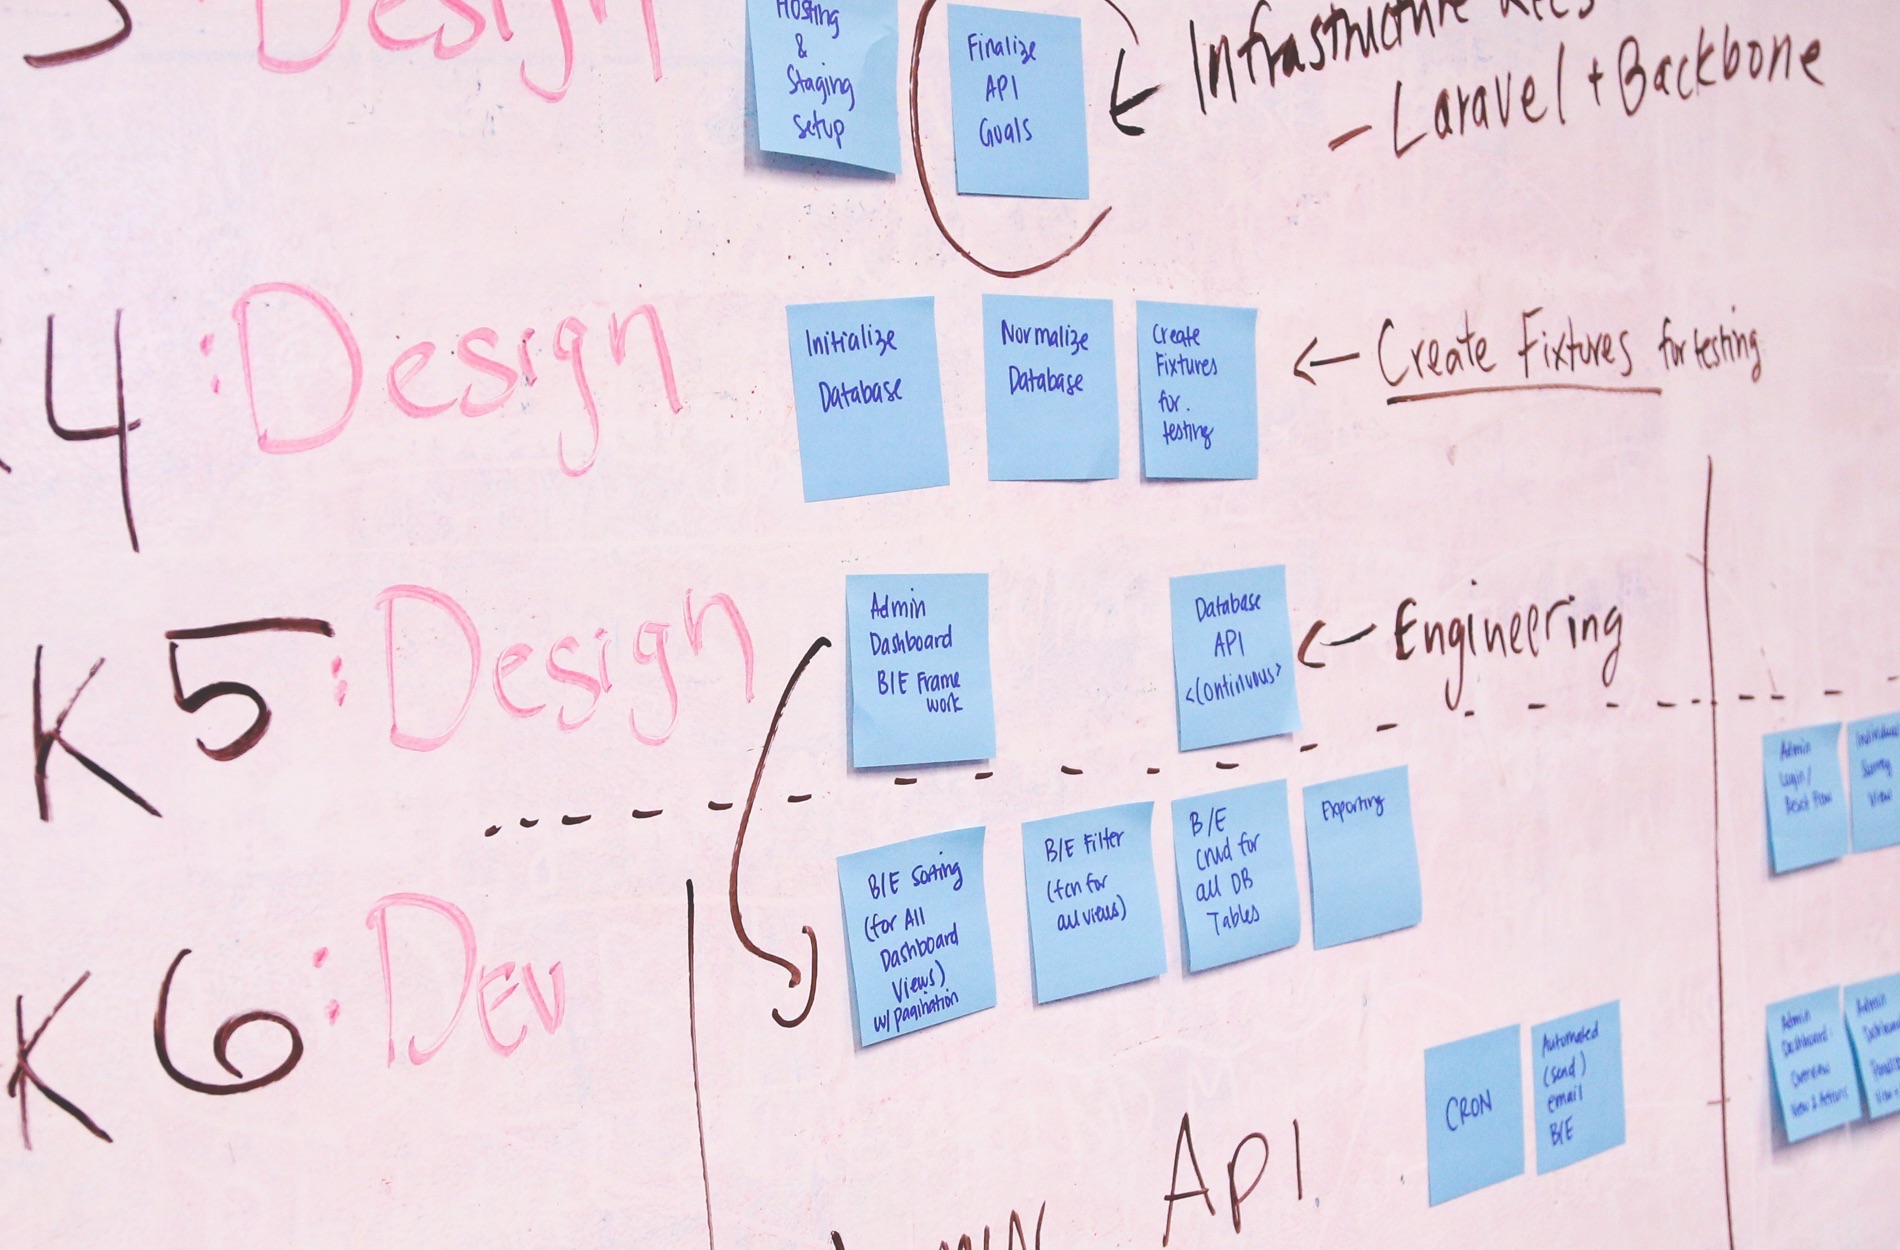 Design
Hosting
&
Staging
Setup
Finalize
API
Goals
Infrastructure
- Laravel + Backbone
4 : Design
Initialize
Database
Normalize
Database
Create
Fixtures
for.
testing
Create Fixtures for testing
K 5 : Design
Admin
Dashboard
B/E Frame
work
Database
API
<Continuous>
Engineering
K 6 : Dev
B/E Sorting
(for All
Dashboard
Views)
w/ pagination
B/E Filter
(fcn for
all views)
B/E
crud for
all DB
Tables
Exporting
Admin
Login/
Reset Flow
Survey
View
CRON
Automated
(send)
email
B/E
Admin
Dashboard
Overview
Admin
API